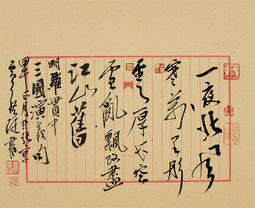 一夜北风
寒万里彤
雲厚长空
雪亂飄改盡
江山舊
明羅貫中
三國演義句